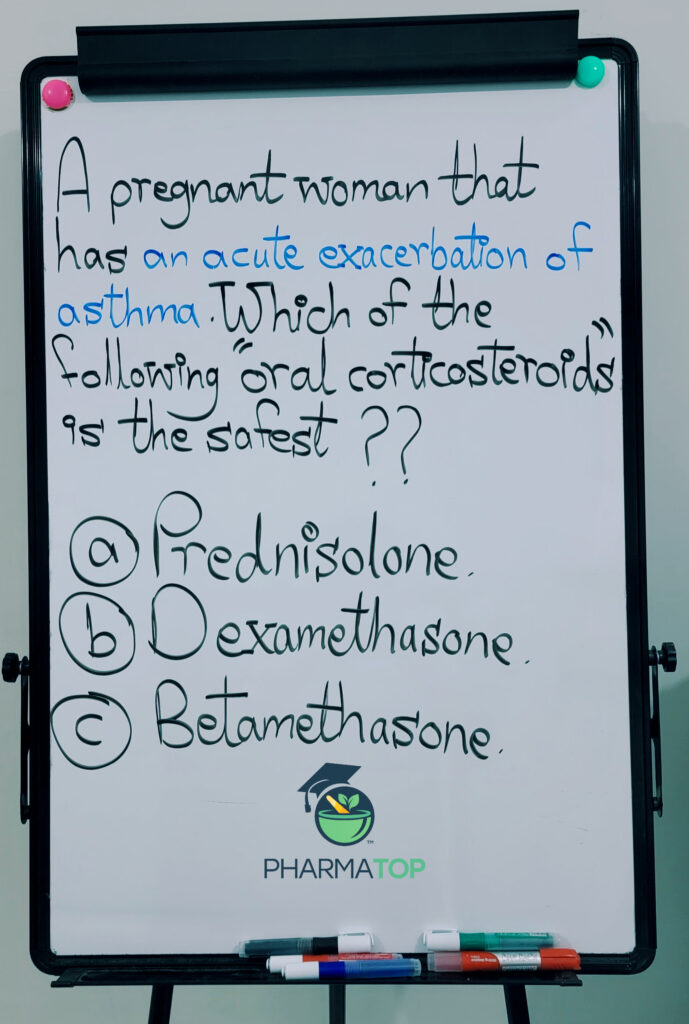 A pregnant woman that
has an acute exacerbation of
asthma. Which of the
following "oral corticosteroids"
is the safest ??
a Prednisolone.
b Dexamethasone.
c Betamethasone.
TM
PHARMATOP